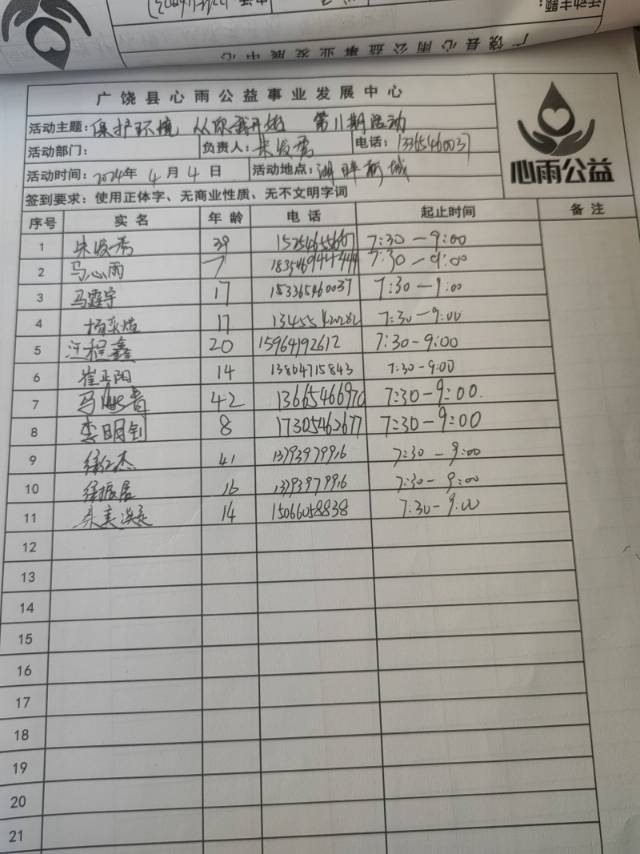 广饶县心雨公益事业发展中心
广饶县心雨公益事业发展中心
活动主题：保护环境 从你我开始 第11期活动
活动部门： 负责人： 电话：13365460037
活动时间：2024年4月4日 活动地点：湖畔新城
心雨公益
签到要求：使用正体字、无商业性质、无不文明字词
序号 实名 年龄 电话 起止时间 备注
1 39 7:30-9:00
2 马心雨 7 7:30-9:00
3 马霆宇 17 153365460037 7:30-9:00
4 17 7:30-9:00
5 汪程鑫 20 15964192612 7:30-9:00
6 崔正阳 14 13864715843 7:30-9:00
7 42 13665466970 7:30-9:00.
8 李明钊 8 17305462677 7:30-9:00
9 41 13793979916 7:30-9:00
10 徐振宸 16 13793979916 7:30-9:00
11 14 15066058838 7:30-9:00
12
13
14
15
16
17
18
19
20
21